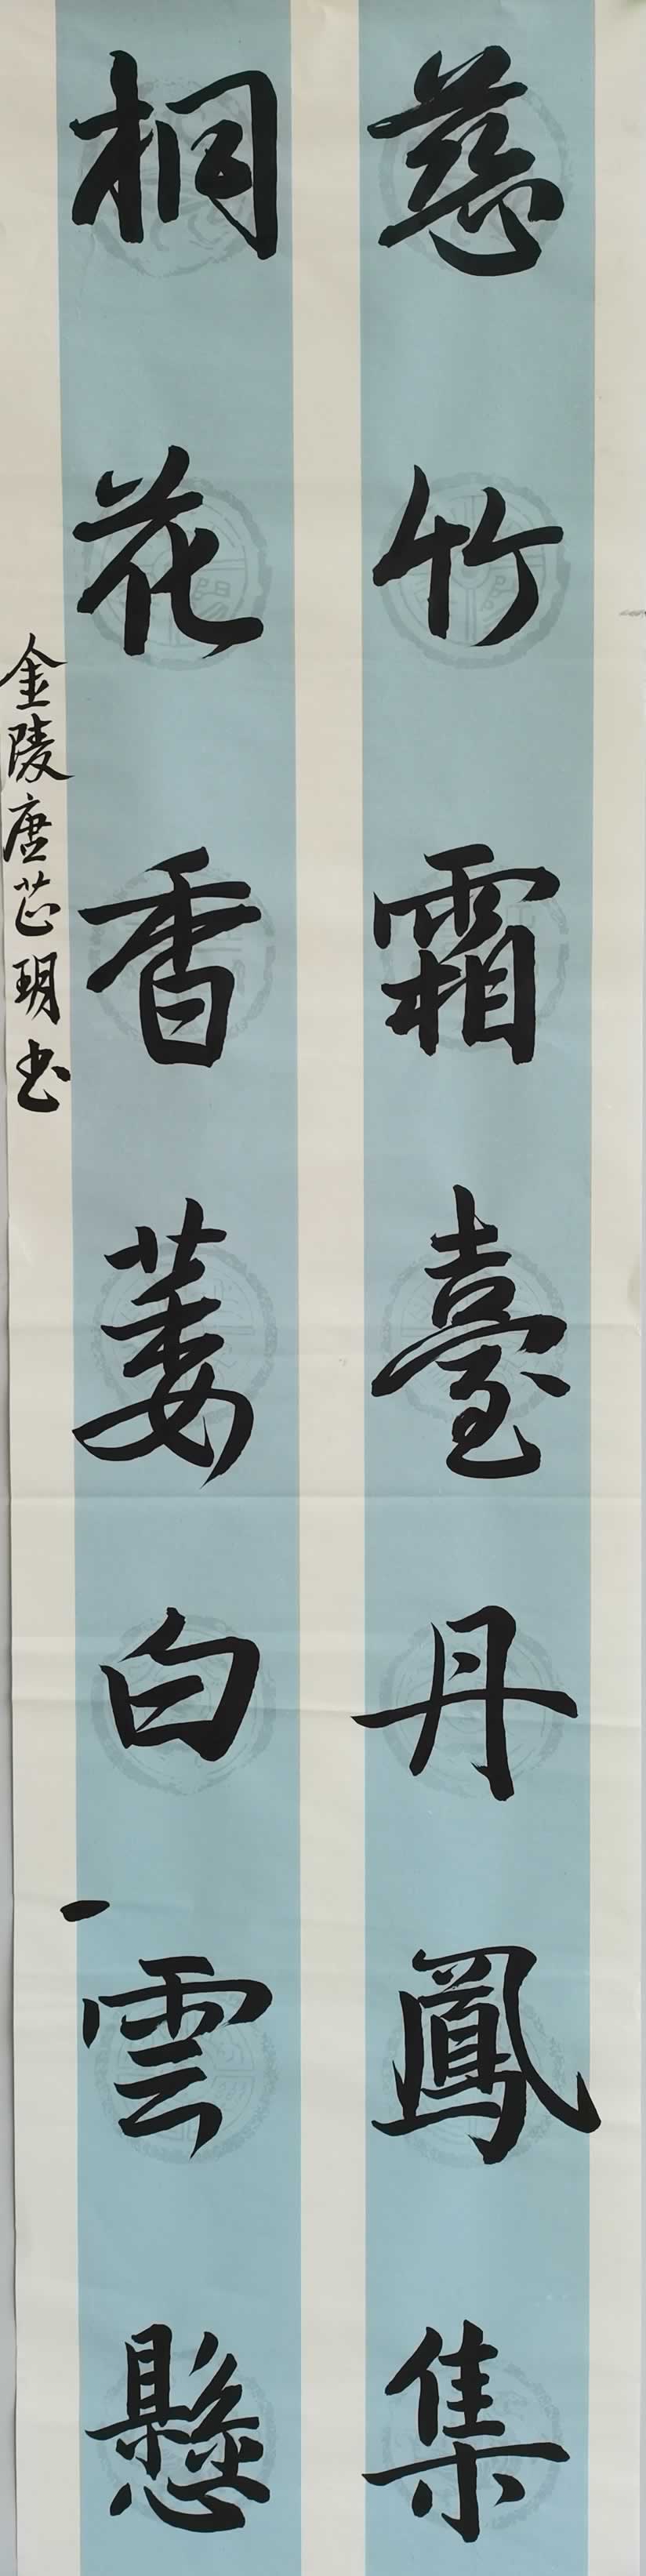 慈竹霜臺丹鳳集
桐花香萎白雲懸
金陵唐芷玥书